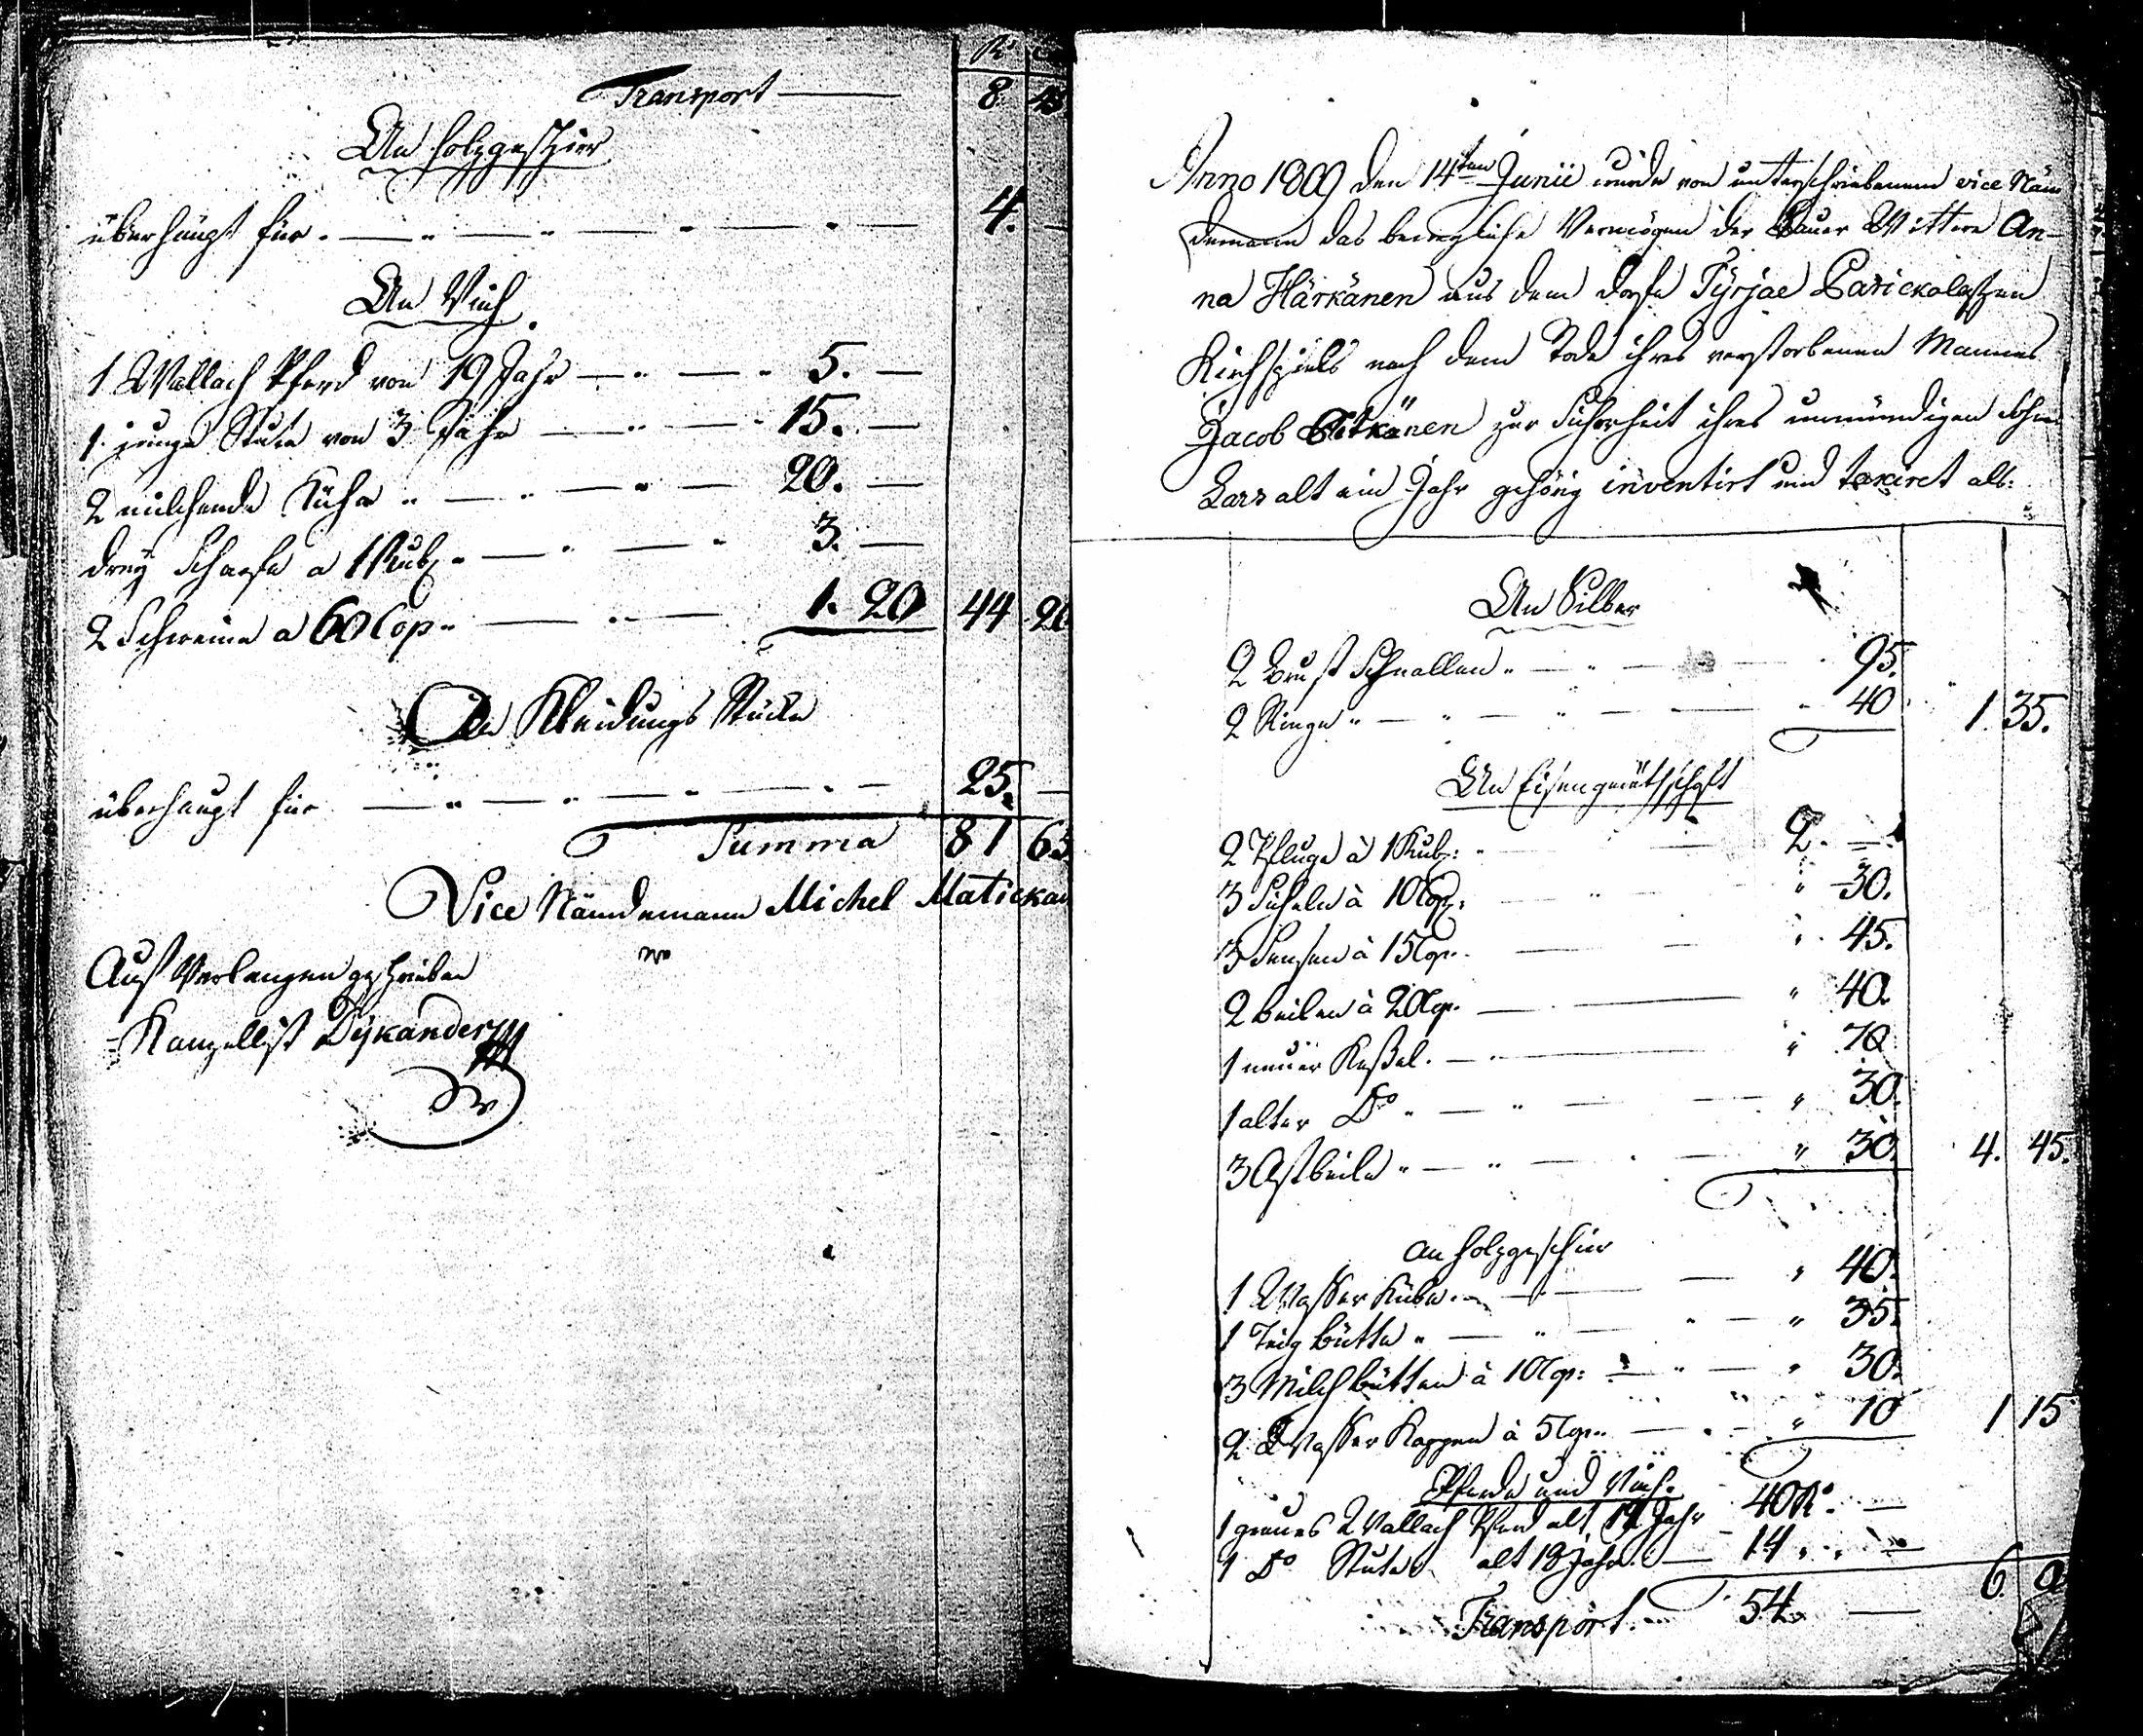 R. C.
Transport — 8. 43
An Holzgeschirr
überhaupt für. — 4. —
An Vieh.
1 Wallach Pferd von 19 Jahr — 5. —
1. junge Stute von 3 Jahr — 15. —
2 milchende Kühe — 20. —
drey Schaafe a 1 Rub. — 3. —
2 Schweine a 60 Cop. — 1. 20 44 20
An Kleidungs Stücke
überhaupt für — 25. —
Summa 81 63
Vice Nämdemann Michel Matickain
Auf Verlangen geschrieben
Kanzellist Dijkander
Anno 1809 den 14ten Junii wurde von unterschriebenem vice Näm
demann das bewegliche Vermögen der Bauer Wittwe An-
na Härkänen aus dem dorfe Tyrjae Parickalaschen
Kirchspiels nach dem Tode ihres verstorbenen Mannes
Jacob Pitkänen zur Sicherheit ihres unmündigen Sohnes
Lars alt ein Jahr gehörig inventirt und taxiret als:
An Silber
2 Brust Schnallen — 95.
2 Ringe — 40 1. 35.
An Eisengerätschaft
2 Pfluge à 1 Rub: 2. —
3 Sicheln à 10 Cop: 30.
3 Sensen à 15 Cop. 45.
2 Beilen à 20 Cop. 40.
1 neuer Keßel. 70
1 alter Do 30.
3 Astbeile — 30. 4. 45.
An Holzgeschirr
1 Wasser Küben — 40.
1 Teig bütte — 35.
3 Milchbütten à 10 Cop: — 30.
2 Wasser Kappen à 5 Cop. — 10 1 15
Pferde und Vieh.
1 graues Wallach Pferd alt 12 Jahr 40 R. —
1 Do Stute alt 19 Jahr — 14 —
Transport 54. — 6.